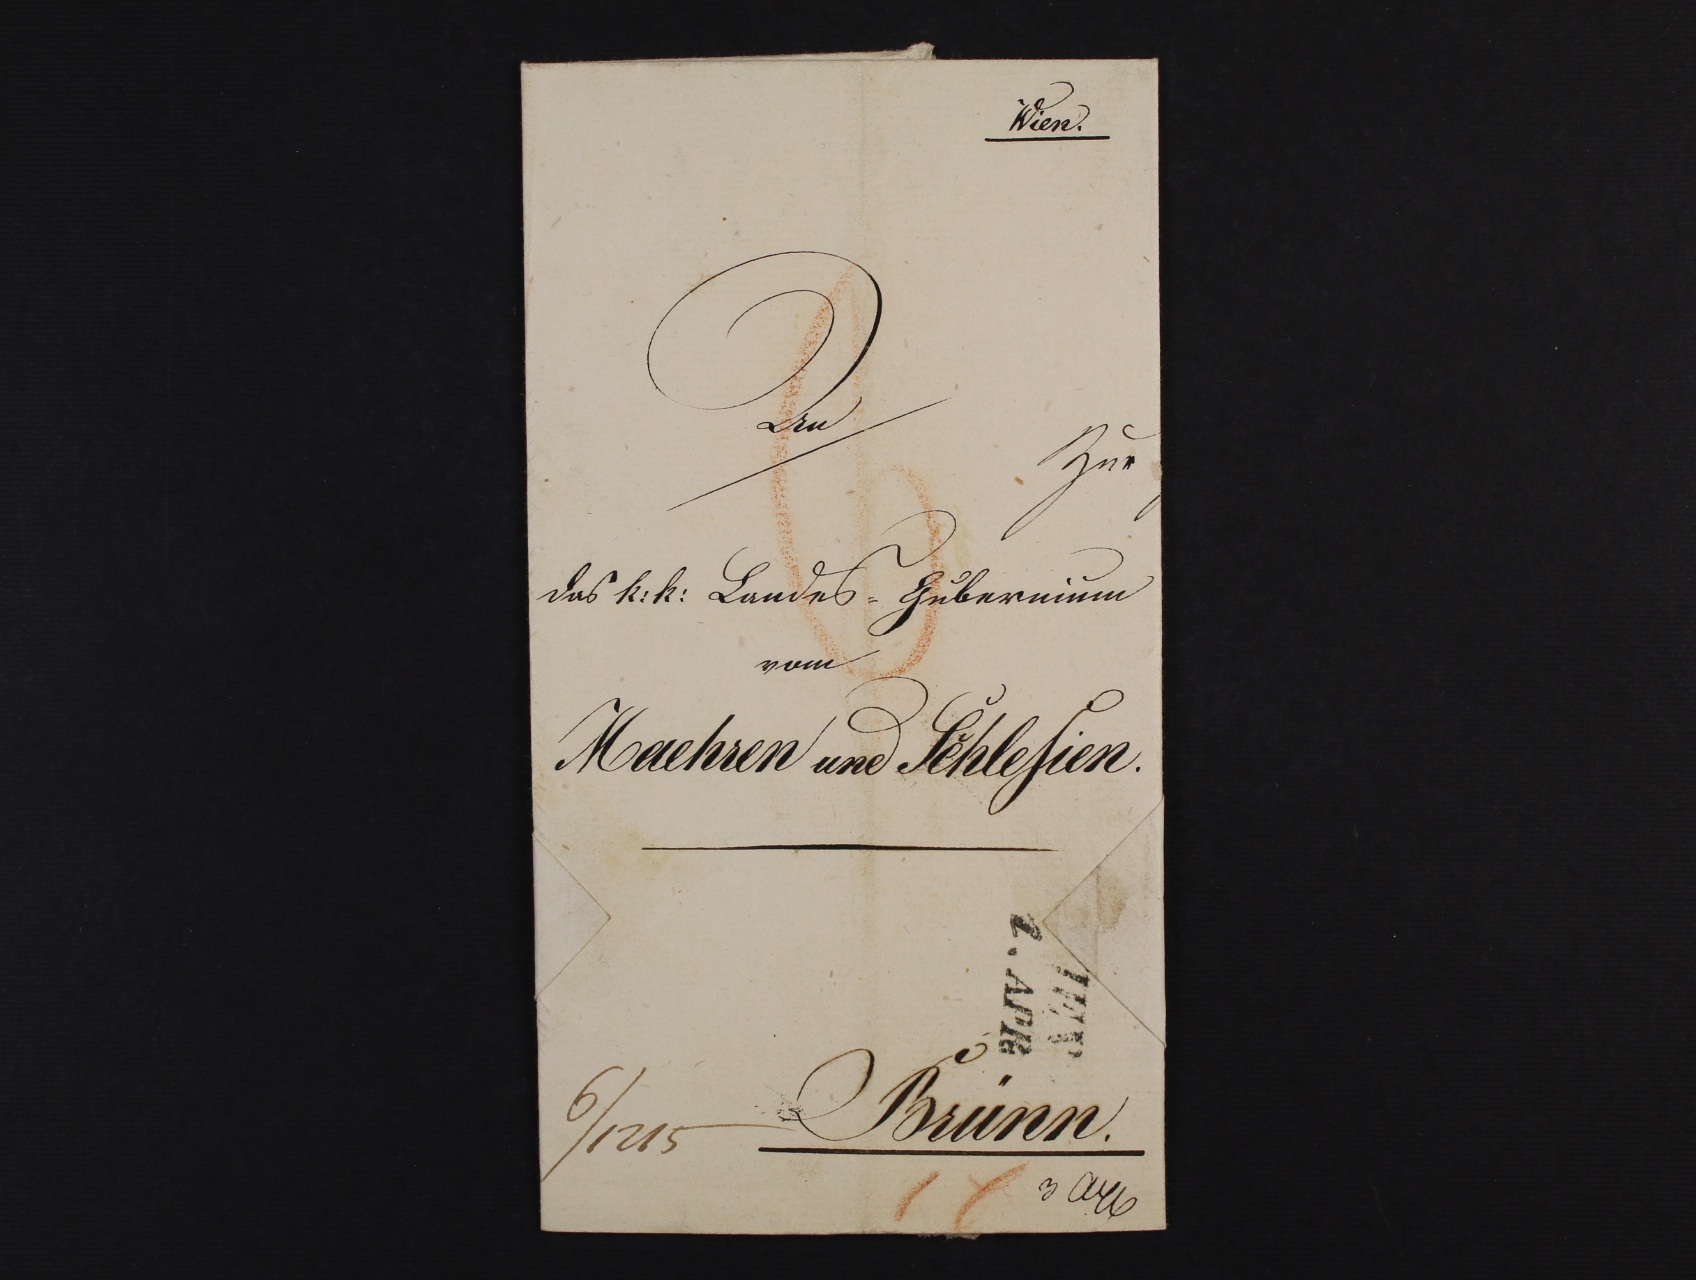 Wien.
An
Zur
das k: k: Landes = Gubernium
vom
Maehren und Schlesien.
WIEN
2. APR
Brünn.
6/1215
3